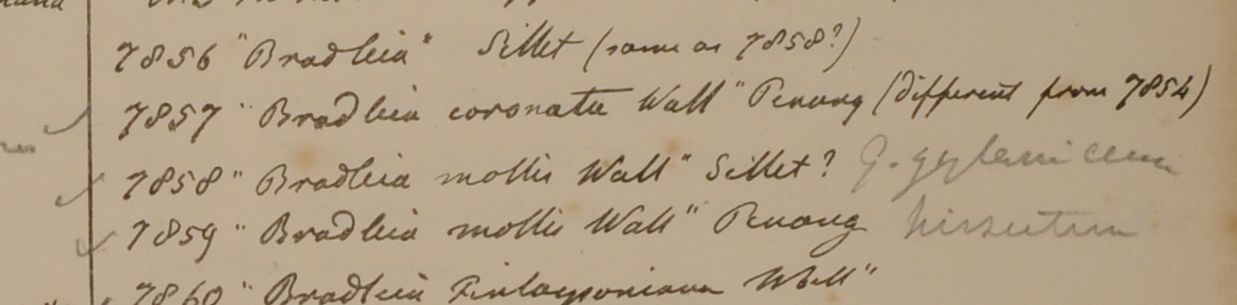 7856 "Bradleia" Sillet (same as 7858?)
7857 "Bradleia coronata Wall" Penang (different from 7854)
7858 "Bradleia mollis Wall" Sillet? G. zeylanicum
7859 "Bradleia mollis Wall" Penang hirsutum
7860 "Bradleia Finlaysoniana Wall"